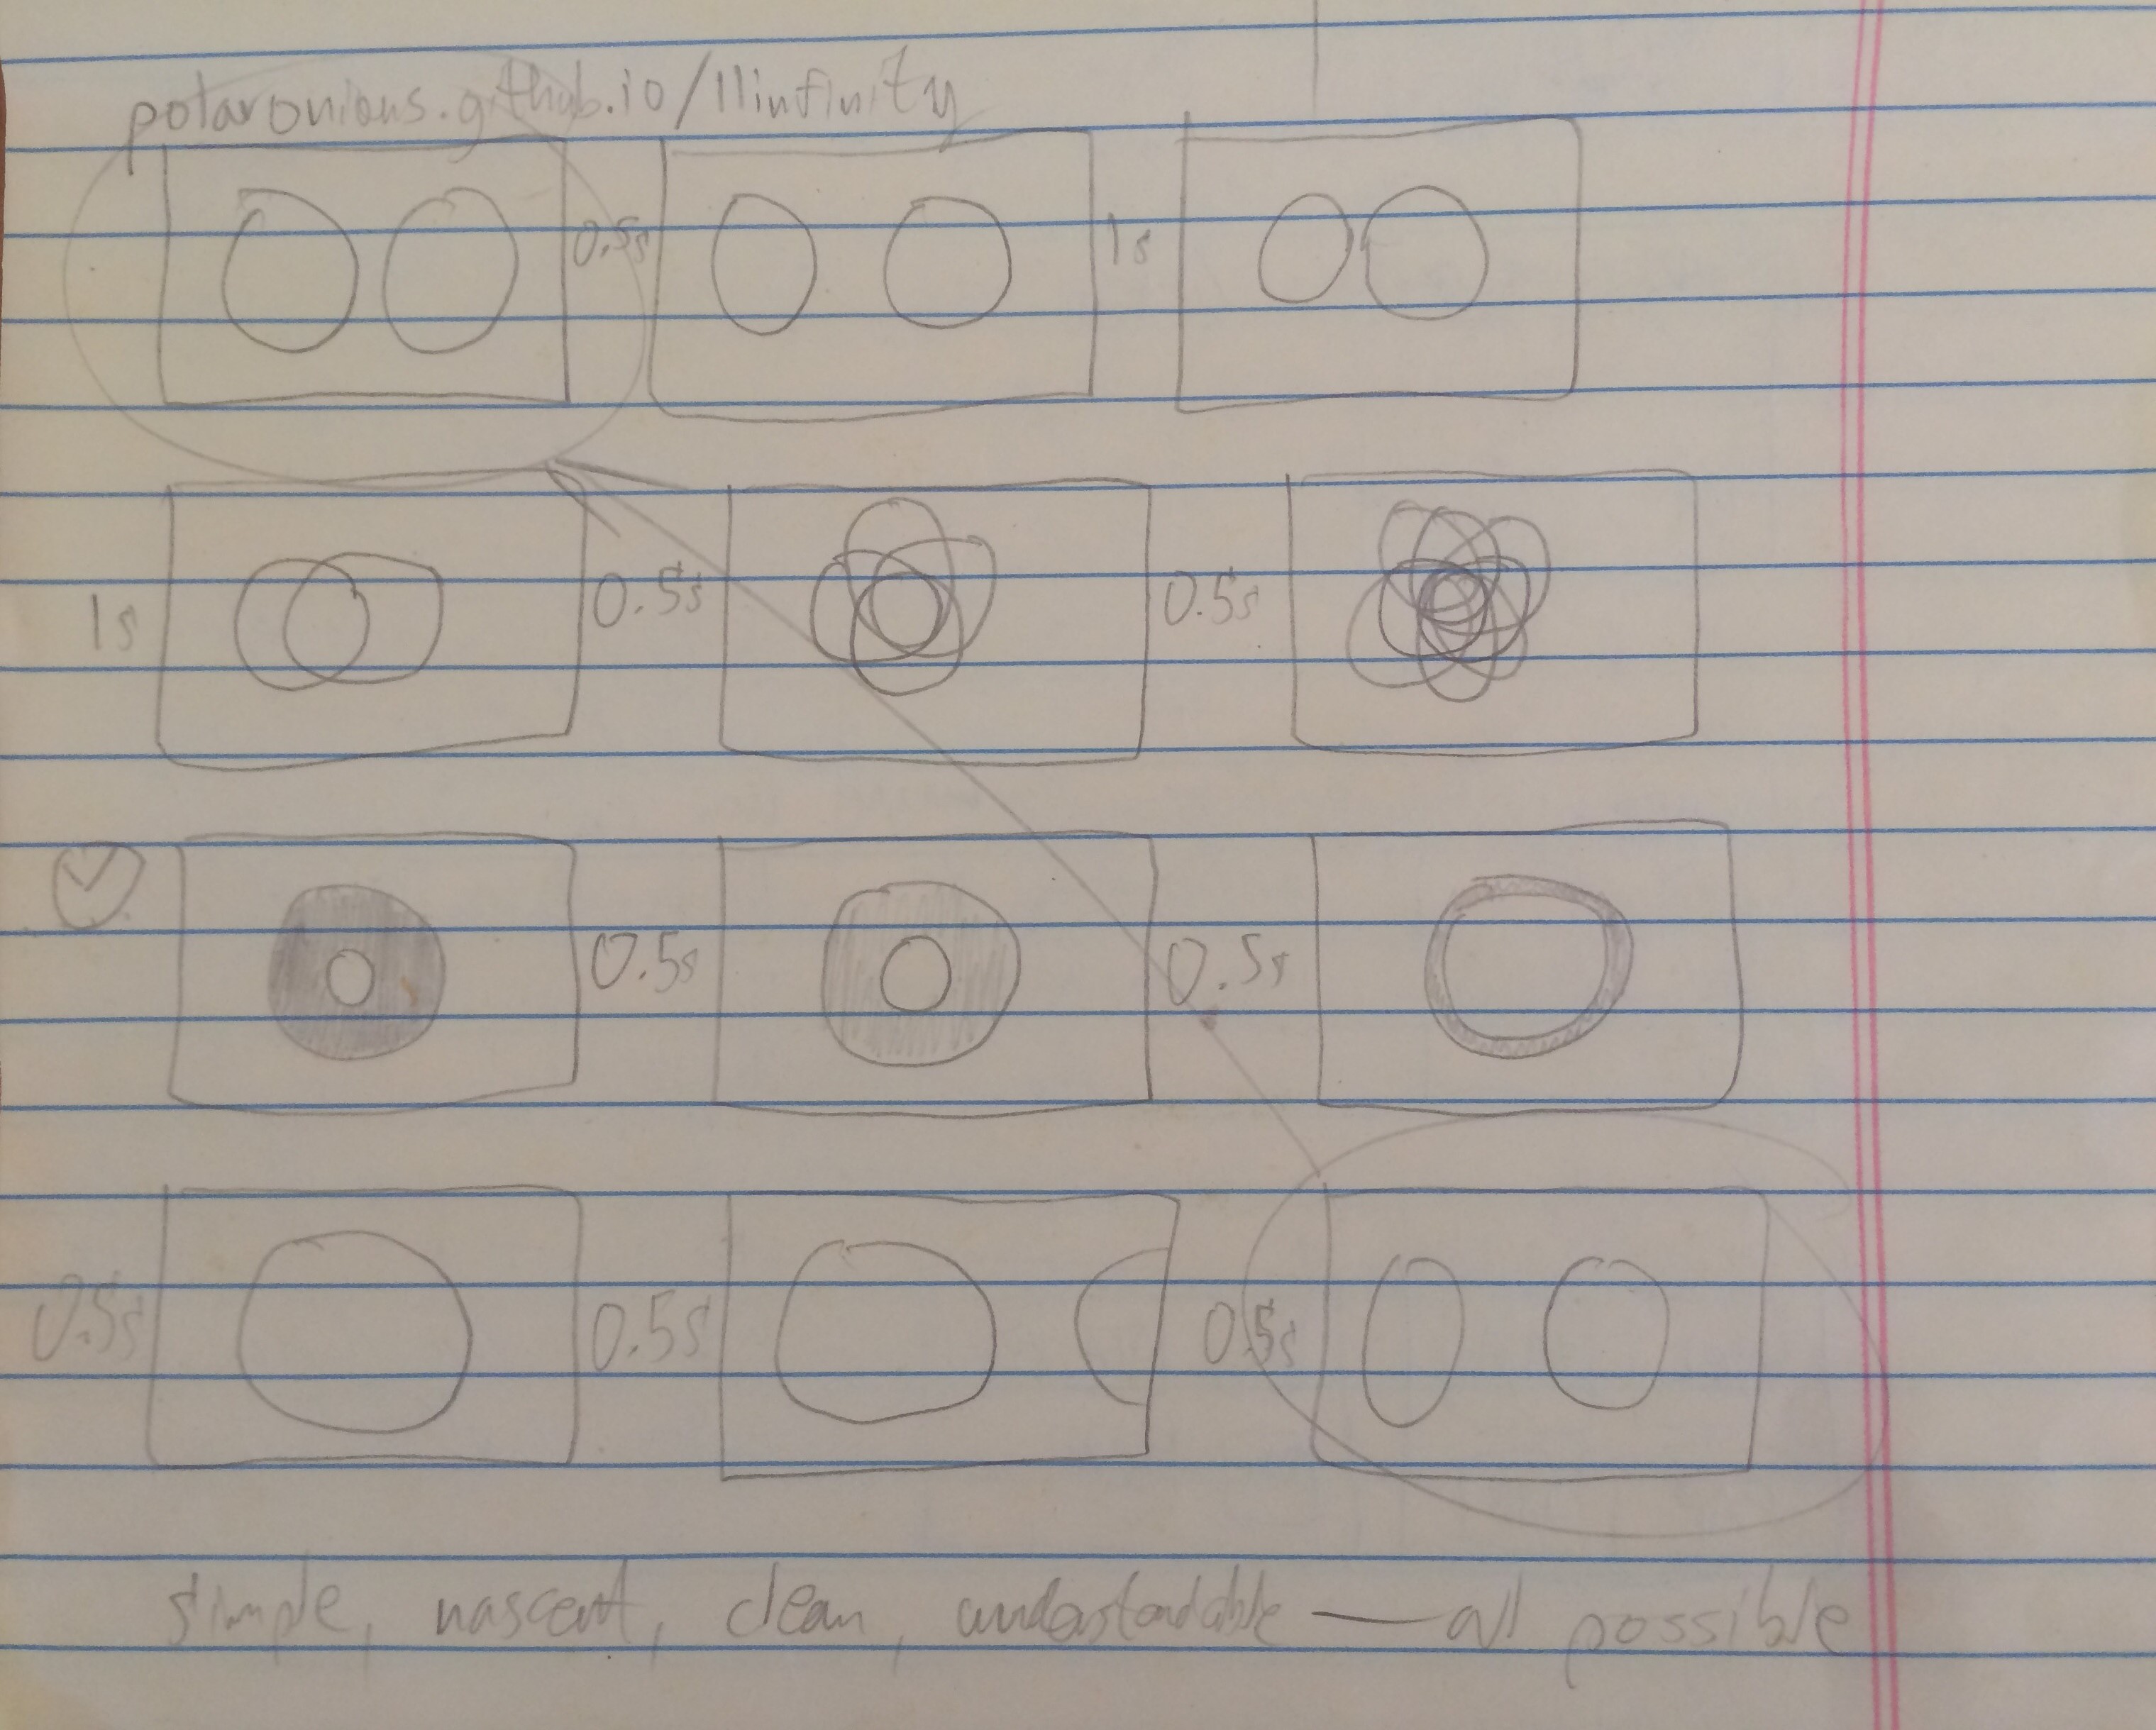 polaronions.github.io/11infinity
0.5s 1s
1s 0.5s 0.5s
0.5s 0.5s
0.5s 0.5s 0.5s
simple, nascent, clean, understandable — all possible